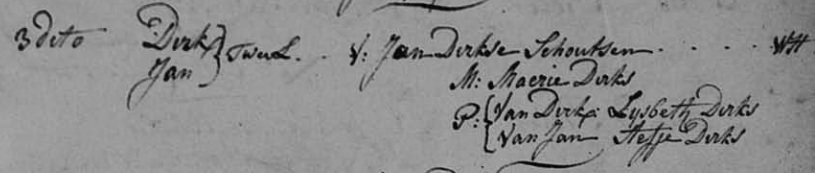 3 dito Dirk } Twel. . V: Jan Dirkse Schoutsen . . . . WH
Jan
M: Maerie Dirks
P: { Van Dirk: Lysbeth Dirks
Van Jan Aefje Dirks